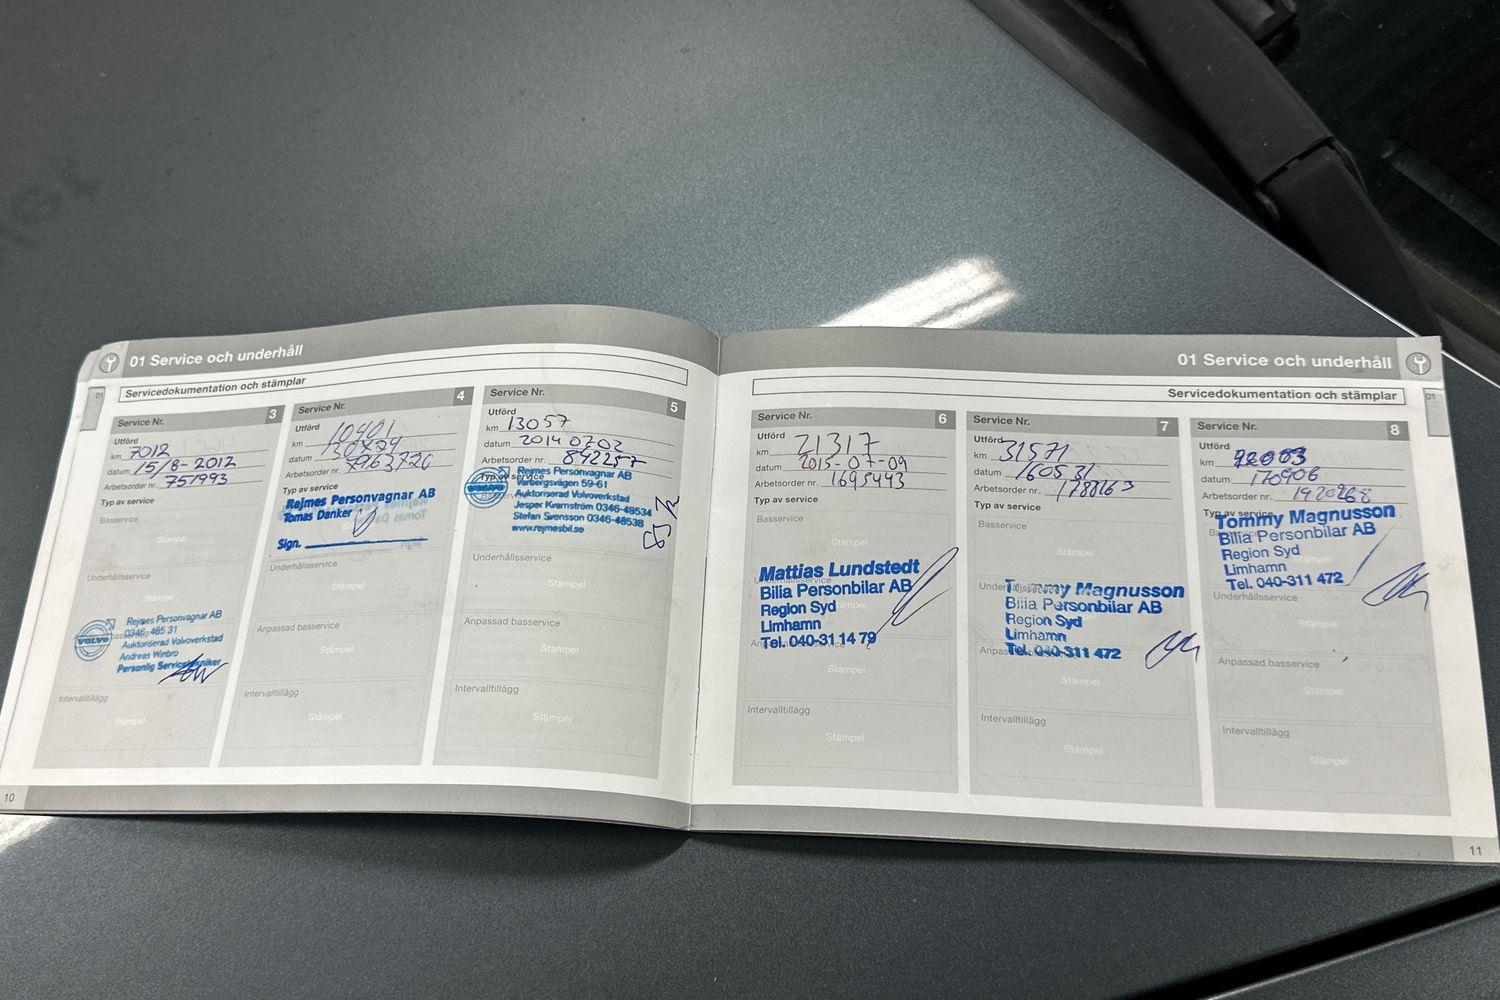 01 Service och underhåll
01
Servicedokumentation och stämplar
Service Nr. 3
Utförd
km 7012
datum 15/8-2012
Arbetsorder nr. 751993
Typ av service
Basservice
Stämpel
Underhållsservice
Stämpel
Rejmes Personvagnar AB
0346-485 31
VOLVO
Auktoriserad Volvoverkstad
Andreas Winbro
Personlig Servicetekniker
Intervalltillägg
Stämpel
Service Nr. 4
Utförd
km 10401
datum
Arbetsorder nr.
Typ av service
Rejmes Personvagnar AB
Tomas Danker
Sign.
Underhållsservice
Stämpel
Anpassad basservice
Stämpel
Intervalltillägg
Stämpel
Service Nr. 5
Utförd
km 13057
datum 2014 0702
Arbetsorder nr. 842257
Typ av service
VOLVO
Rejmes Personvagnar AB
Varbergsvägen 59-61
Auktoriserad Volvoverkstad
Jesper Kvarnström 0346-48534
Stefan Svensson 0346-48538
www.rejmesbil.se
Underhållsservice
Stämpel
Anpassad basservice
Stämpel
Intervalltillägg
Stämpel
10
01 Service och underhåll
01
Servicedokumentation och stämplar
Service Nr. 6
Utförd
km 21317
datum 2015-07-09
Arbetsorder nr. 1695443
Typ av service
Basservice
Stämpel
Underhållsservice
Mattias Lundstedt
Bilia Personbilar AB
Region Syd
Limhamn
Tel. 040-31 14 79
Intervalltillägg
Stämpel
Service Nr. 7
Utförd
km 31571
datum 160531
Arbetsorder nr. 1788163
Typ av service
Basservice
Stämpel
Tommy Magnusson
Bilia Personbilar AB
Region Syd
Limhamn
Tel. 040-311 472
Stämpel
Intervalltillägg
Stämpel
Service Nr. 8
Utförd
km
datum 170906
Arbetsorder nr. 1920268
Typ av service
Tommy Magnusson
Bilia Personbilar AB
Region Syd
Limhamn
Tel. 040-311 472
Underhållsservice
Stämpel
Anpassad basservice
Stämpel
Intervalltillägg
Stämpel
11